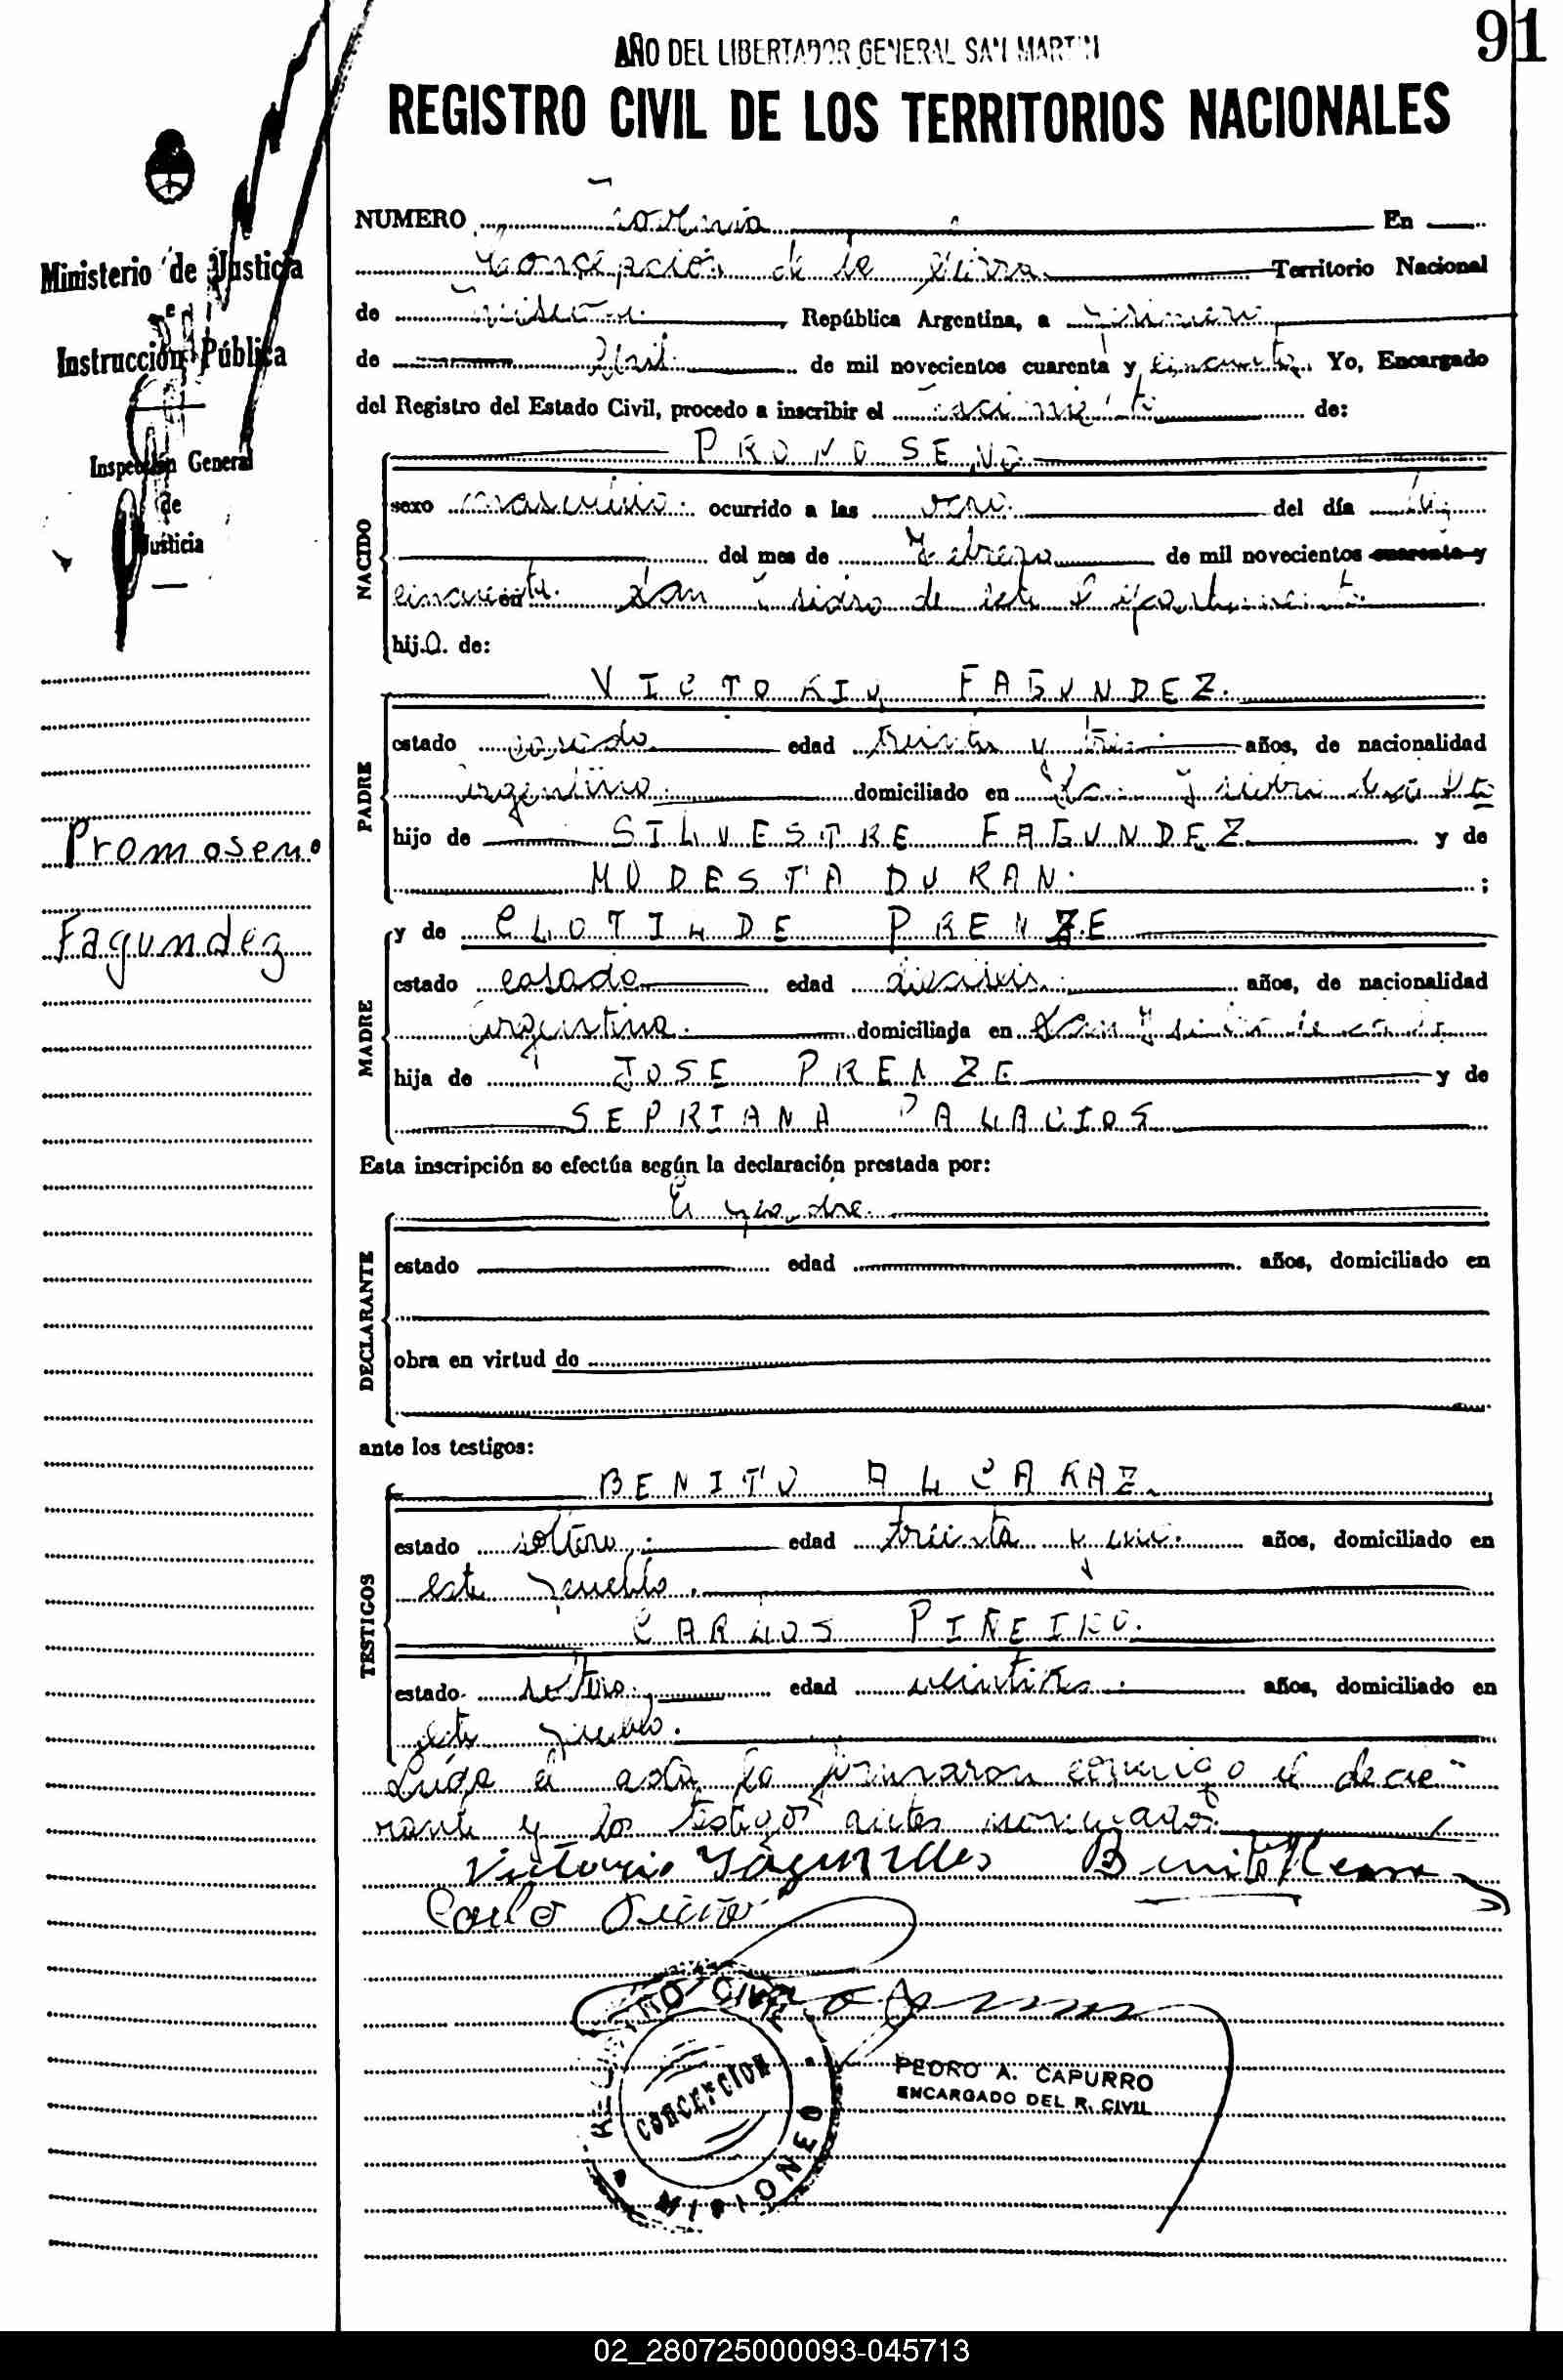 91
AÑO DEL LIBERTADOR GENERAL SAN MARTIN
REGISTRO CIVIL DE LOS TERRITORIOS NACIONALES
Ministerio de Justicia
e
Instrucción Pública
Inspección General
de
Justicia
Promoseno
Fagundez
NUMERO En
Concepción de la Sierra Territorio Nacional
de Misiones República Argentina, a primero
de Abril de mil novecientos cuarenta y cincuenta. Yo, Encargado
del Registro del Estado Civil, procedo a inscribir el nacimiento de:
NACIDO
PROMOSENO
sexo masculino. ocurrido a las ocho. del día
del mes de Febrero de mil novecientos cuarenta y
cincuenta. en San Isidro de este Departamento.
hijo. de:
PADRE
VICTORIO FAGUNDEZ.
estado casado edad treinta y tres años, de nacionalidad
argentino. domiciliado en San Isidro
hijo de SILVESTRE FAGUNDEZ y de
MODESTA DURAN. ;
MADRE
y de CLOTILDE PRENZE
estado casada edad dieciseis. años, de nacionalidad
argentina. domiciliada en San Isidro
hija de JOSE PRENZE y de
SEPRIANA PALACIOS
Esta inscripción se efectúa según la declaración prestada por:
DECLARANTE
El padre.
estado edad años, domiciliado en
obra en virtud de
ante los testigos:
TESTIGOS
BENITO ALCARAZ.
estado soltero. edad treinta y años, domiciliado en
este pueblo.
CARLOS PIÑEIRO.
estado soltero. edad años, domiciliado en
este pueblo.
Leída el acta la firmaron conmigo el decla-
rante y los testigos antes nombrados.
Victorio Fagundes Benito
Carlo
REGISTRO CIVIL
CONCEPCION
MISIONES
PEDRO A. CAPURRO
ENCARGADO DEL R. CIVIL
02_280725000093-045713